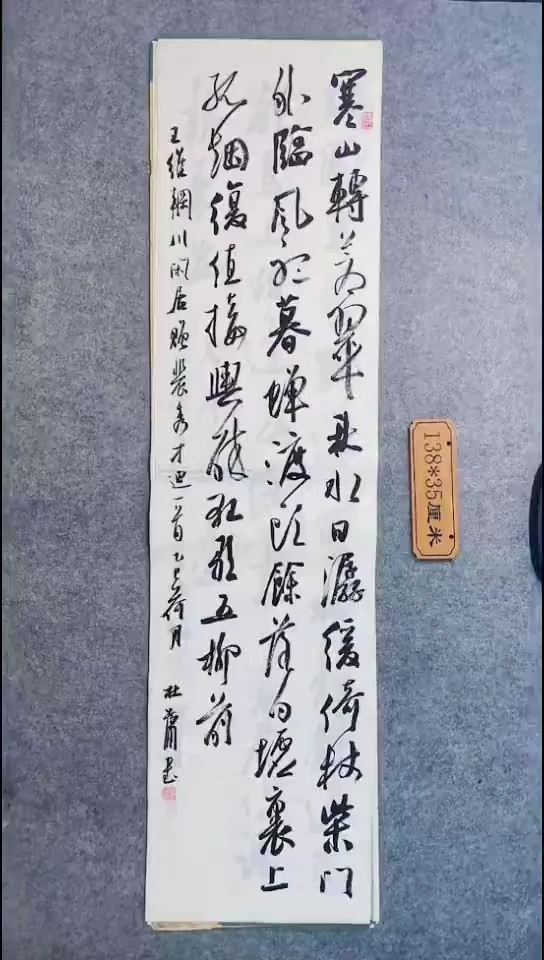 寒山轉蒼翠秋水日潺湲倚杖柴门
外臨风聽暮蝉渡头餘落日墟裏上
孤烟復值接輿醉狂歌五柳前
王維輞川闲居贈裴秀才迪一首乙巳荷月 杜萧书
138*35厘米